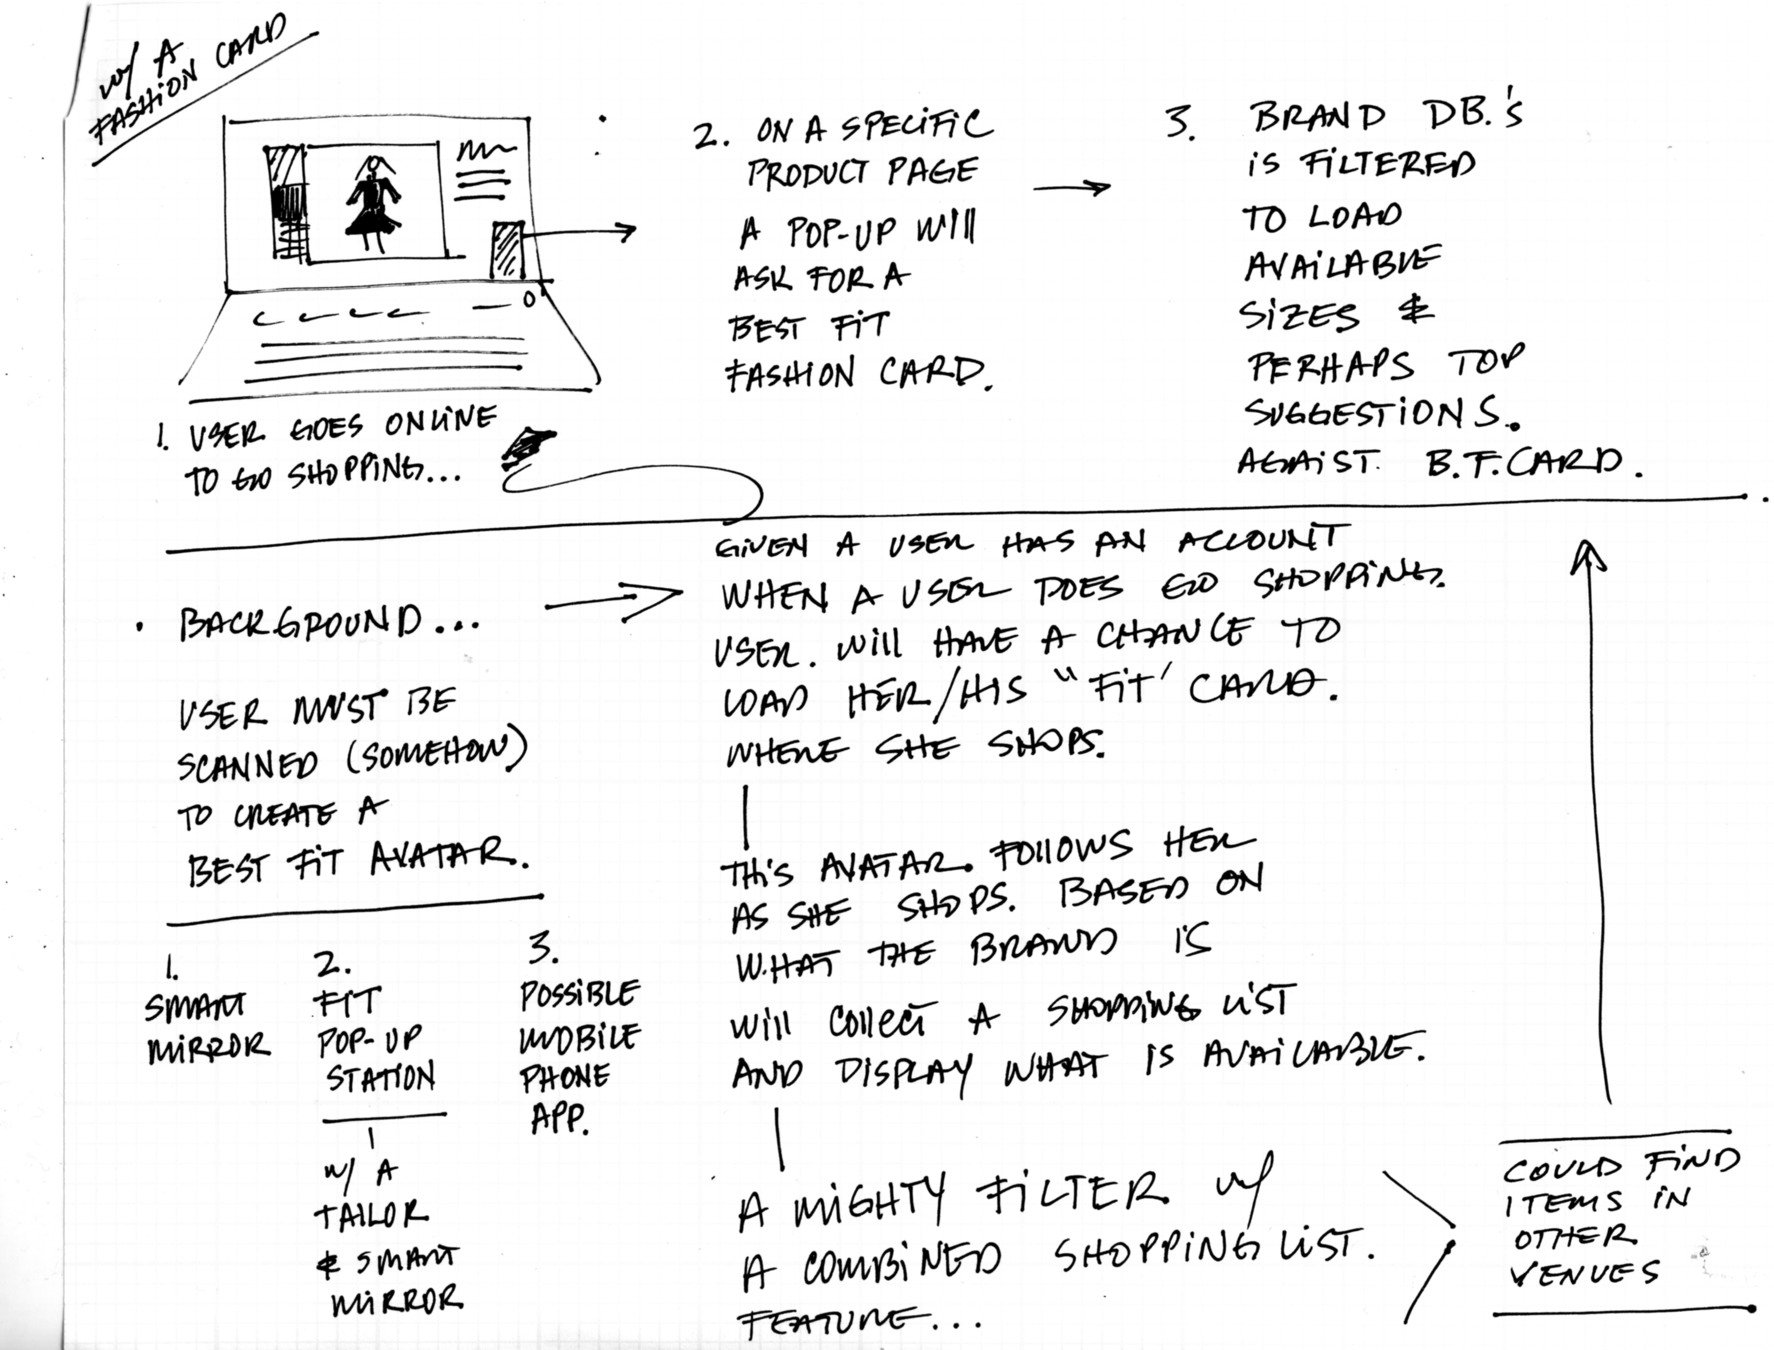 w/ A
FASHION CARD
1. USER GOES ONLINE
TO GO SHOPPING...
2. ON A SPECIFIC
PRODUCT PAGE
A POP-UP WILL
ASK FOR A
BEST FIT
FASHION CARD.
3. BRAND DB.'s
iS FILTERED
TO LOAD
AVAILABLE
SIZES &
PERHAPS TOP
SUGGESTIONS.
AGAIST. B.F. CARD.
BACKGROUND...
USER MUST BE
SCANNED (SOMEHOW)
TO CREATE A
BEST FIT AVATAR.
1.
SMART
MIRROR
2.
FIT
POP-UP
STATION
w/ A
TAILOR
& SMART
MIRROR
3.
POSSIBLE
MOBILE
PHONE
APP.
GIVEN A USER HAS AN ACCOUNT
WHEN A USER DOES GO SHOPPING.
USER. WILL HAVE A CHANCE TO
LOAD HER/HIS "FIT' CARD.
WHERE SHE SHOPS.
THIS AVATAR. FOLLOWS HER
AS SHE SHOPS. BASED ON
WHAT THE BRAND IS
WILL COLLECT A SHOPPING LIST
AND DISPLAY WHAT IS AVAILABLE.
A MIGHTY FILTER w/
A COMBINED SHOPPING LIST.
FEATURE...
COULD FIND
ITEMS IN
OTHER
VENUES